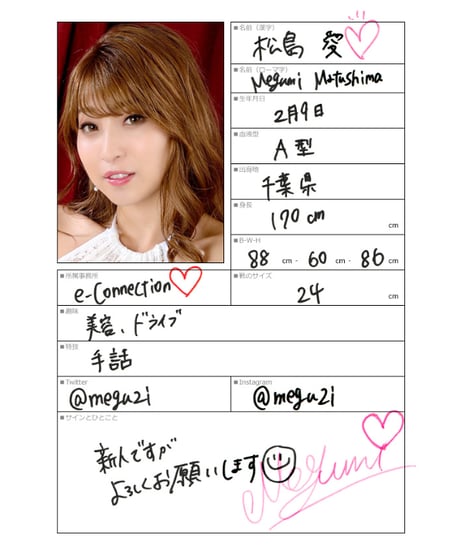 ■名前(漢字)
松島 愛
■名前(ローマ字)
Megumi Matsushima
■生年月日
2月9日
■血液型
A型
■出身地
千葉県
■身長
170cm
cm
■B-W-H
88 cm - 60 cm - 86 cm
■所属事務所
e-Connection
■靴のサイズ
24 cm
■趣味
美容、ドライブ
■特技
手話
■Twitter
@megu2i
■Instagram
@megu2i
■サインとひとこと
新人ですが
よろしくお願いします
Megumi